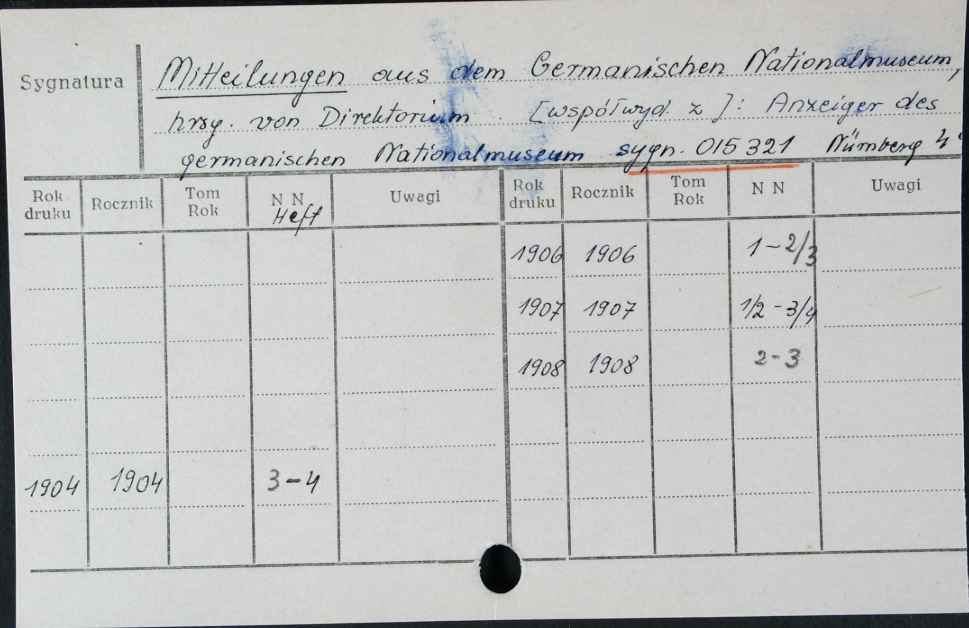 Sygnatura
Mitteilungen aus dem Germanischen Nationalmuseum,
hrsg. von Direktorium. [współwyd. z]: Anzeiger des
germanischen Nationalmuseum sygn. 015 321 Nürnberg 4°
Rok druku Rocznik Tom Rok N N Heft Uwagi Rok druku Rocznik Tom Rok N N Uwagi
1906 1906 1-2/3
1907 1907 1/2-3/4
1908 1908 2-3
1904 1904 3-4